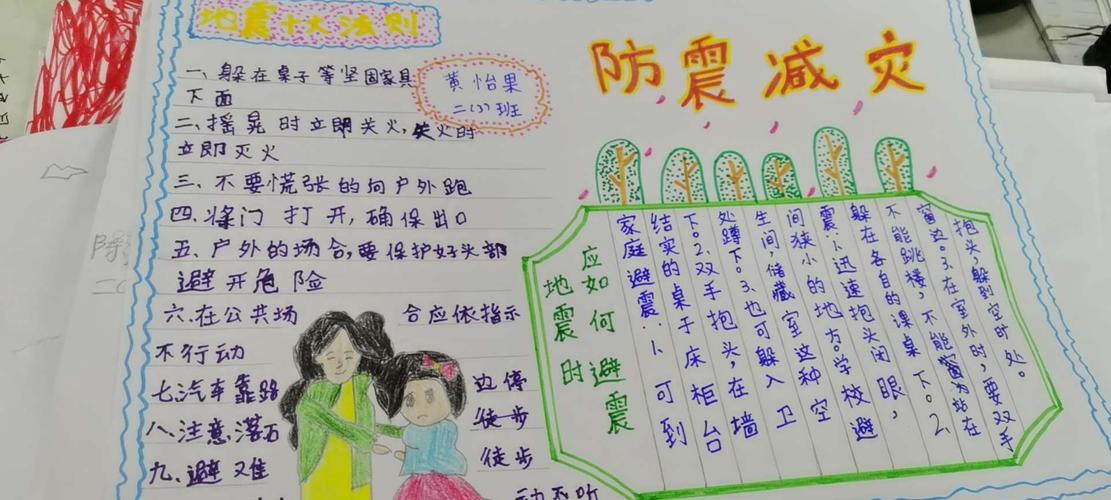 地震十大法则
一、躲在桌子等坚固家具
下面
二、摇晃时立即关火,失火时
立即灭火
三、不要慌张的向户外跑
四、将门打开,确保出口
五、户外的场合,要保护好头部
避开危险
六、在公共场合应依指示
不行动
七、汽车靠路边停
八、注意落石徒步
九、避难徒步
动不听
黄怡果
二(3)班
防震减灾
地震时
应如何避震
家庭避震:1、可到
结实的桌于床柜台
下。2.双手抱头,在墙
处蹲下。3.也可躲入卫
生间,储藏室这种空
间狭小的地方。学校避
震:1、迅速抱头闭眼,
躲在各自的课桌下。2.
不能跳楼,不能站在
窗边。3.在室外时,要双手
抱头,躲到空时处。